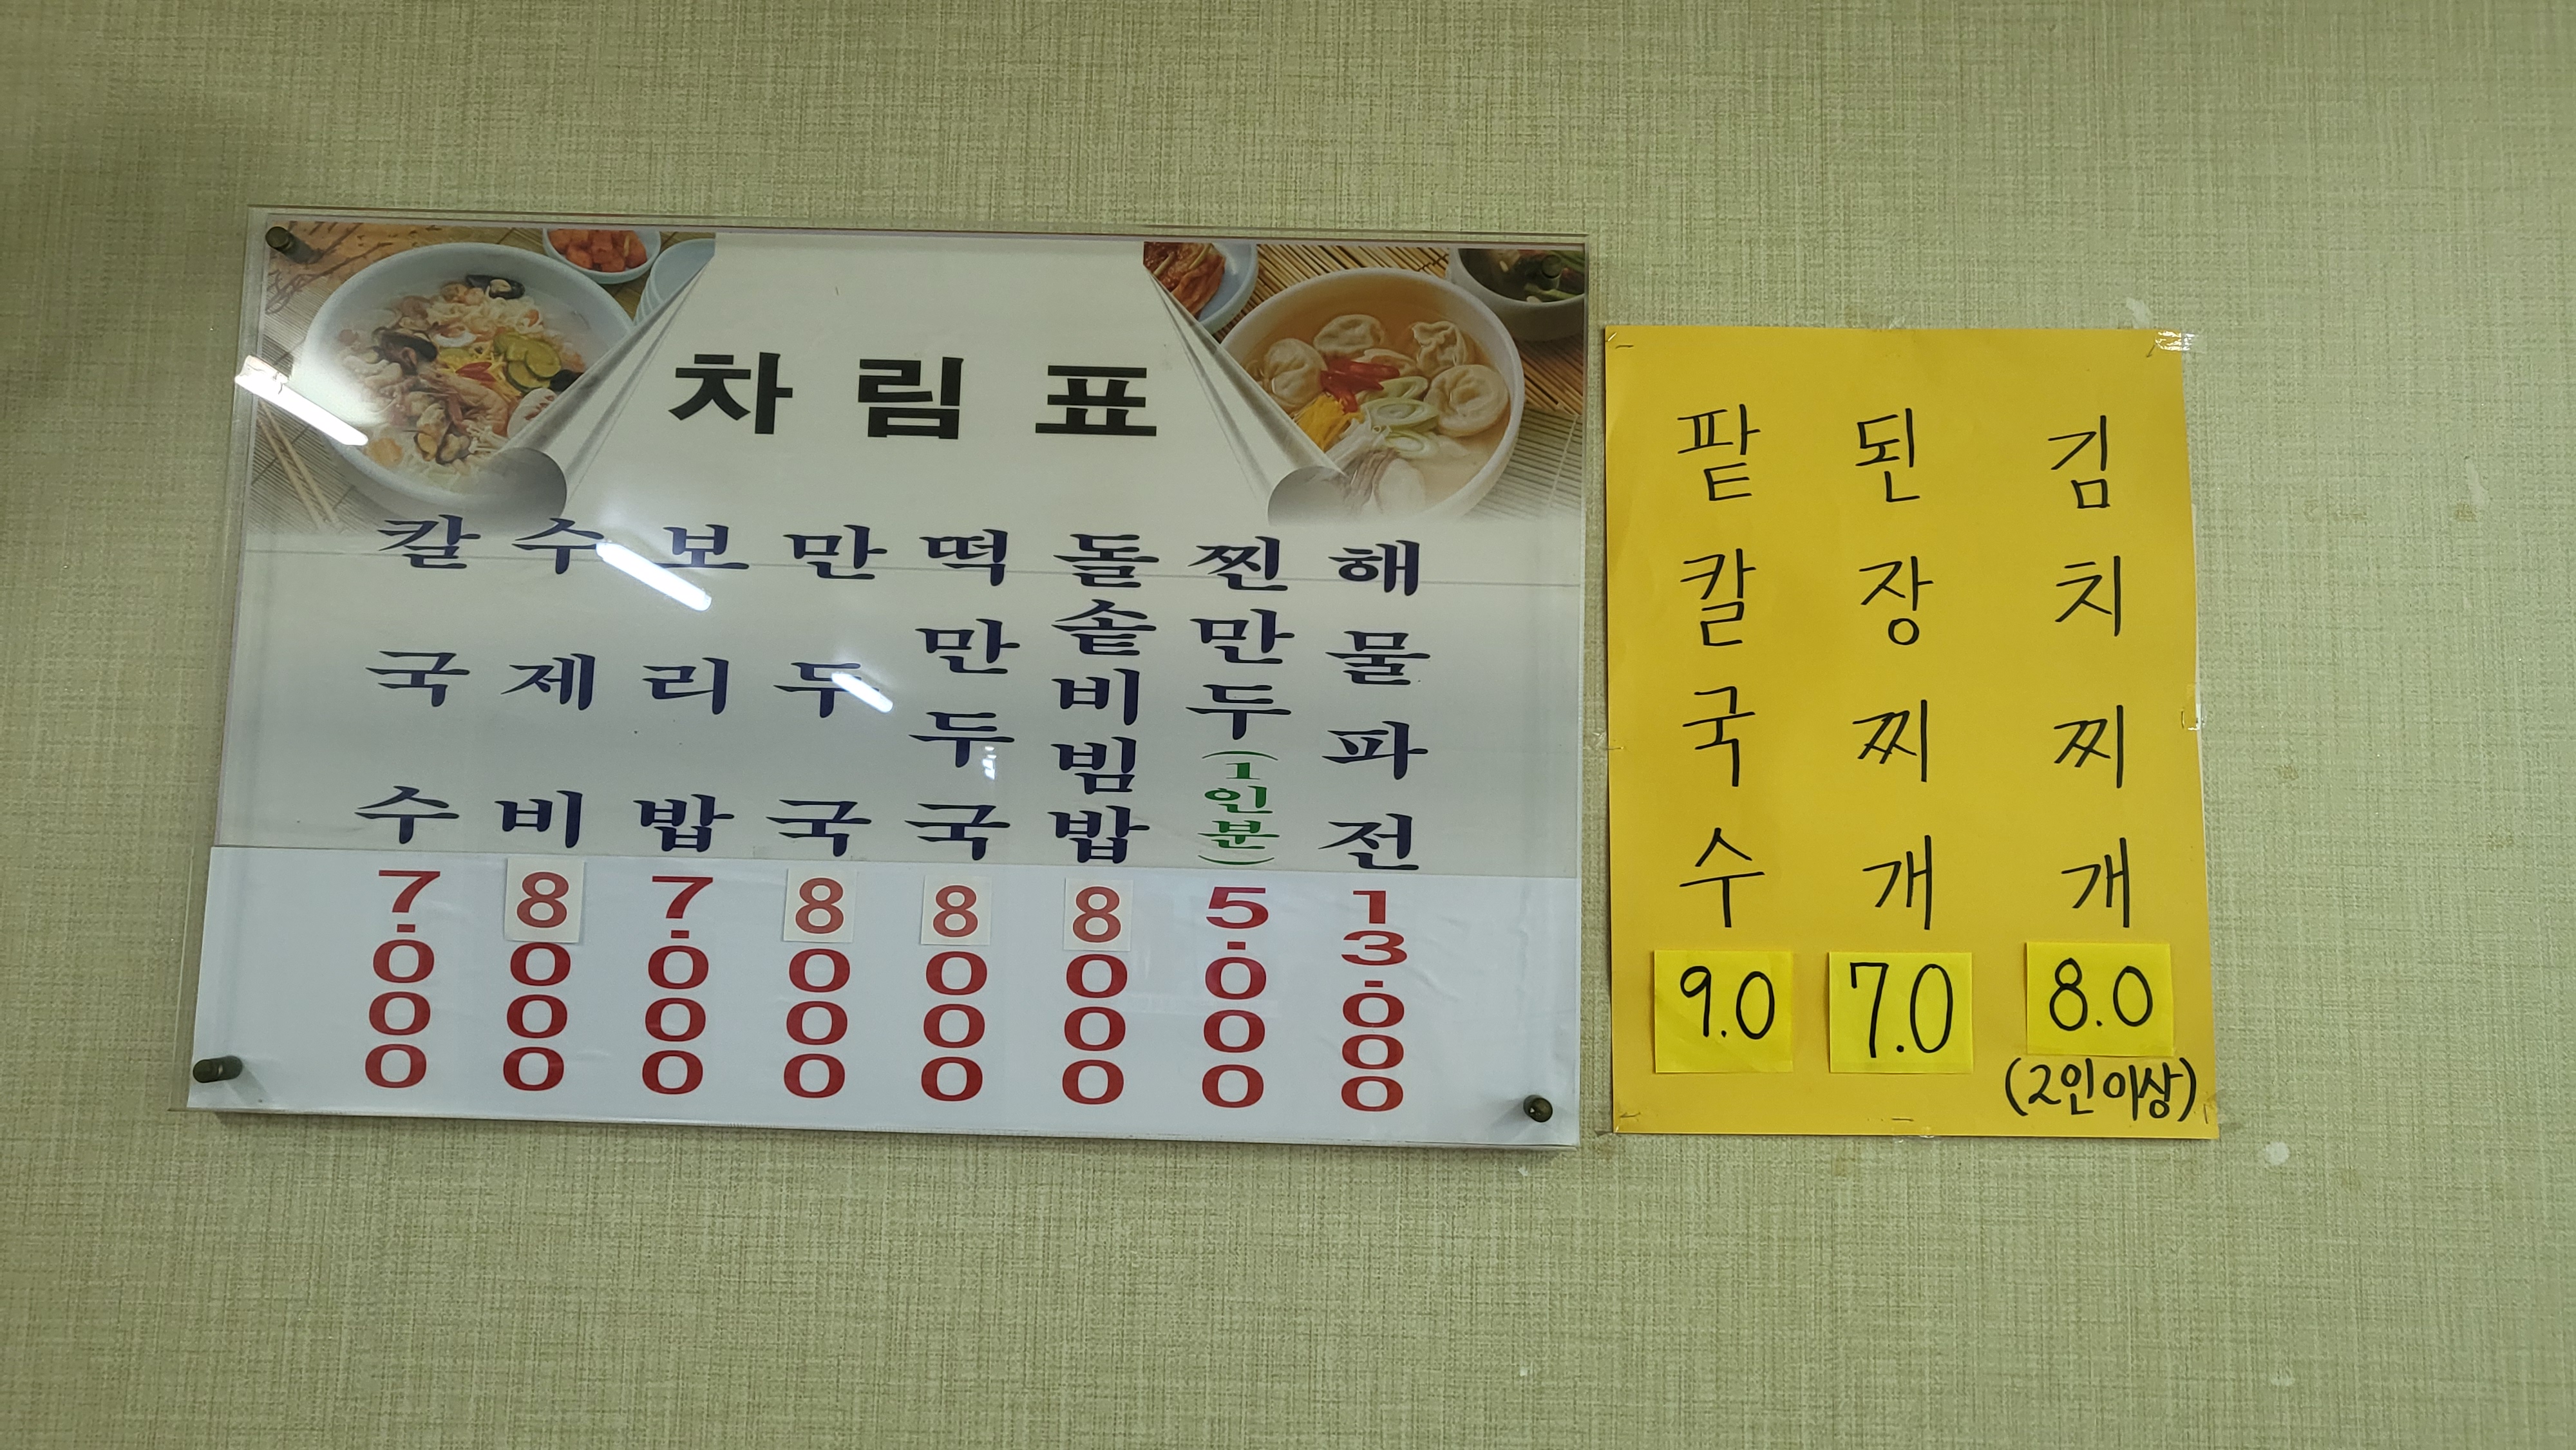 차림표
칼국수 7.000
수제비 8000
보리밥 7.000
만두국 8000
떡만두국 8000
돌솥비빔밥 8000
찐만두(1인분) 5.000
해물파전 13.000
팥칼국수 9.0
된장찌개 7.0
김치찌개 8.0
(2인이상)